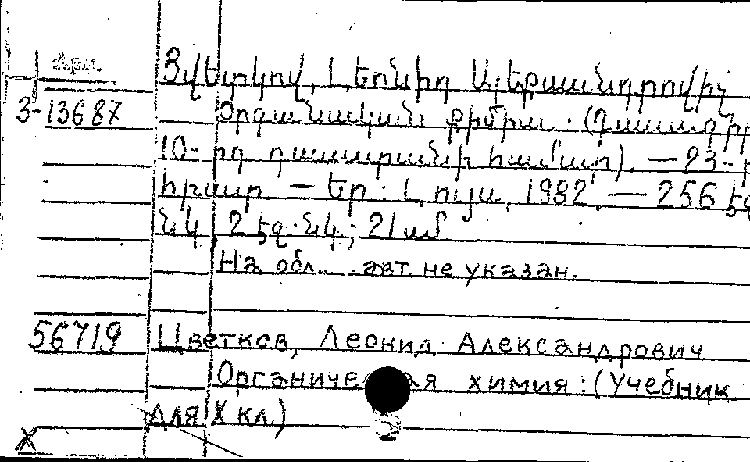 Հրտ.
Ցվետկով, Լեոնիդ Ալեքսանդրովիչ
3-13687 Օրգանական քիմիա. (Դասագիրք
10-րդ դասարանի համար). — 23-
հրատ. — Եր.: Լույս, 1982. — 256 էջ
նկ., 2 էջ. նկ.; 21 սմ
На обл. авт. не указан.
56719 Цветков, Леонид Александрович
Органическая химия: (Учебник
для X кл.)
X